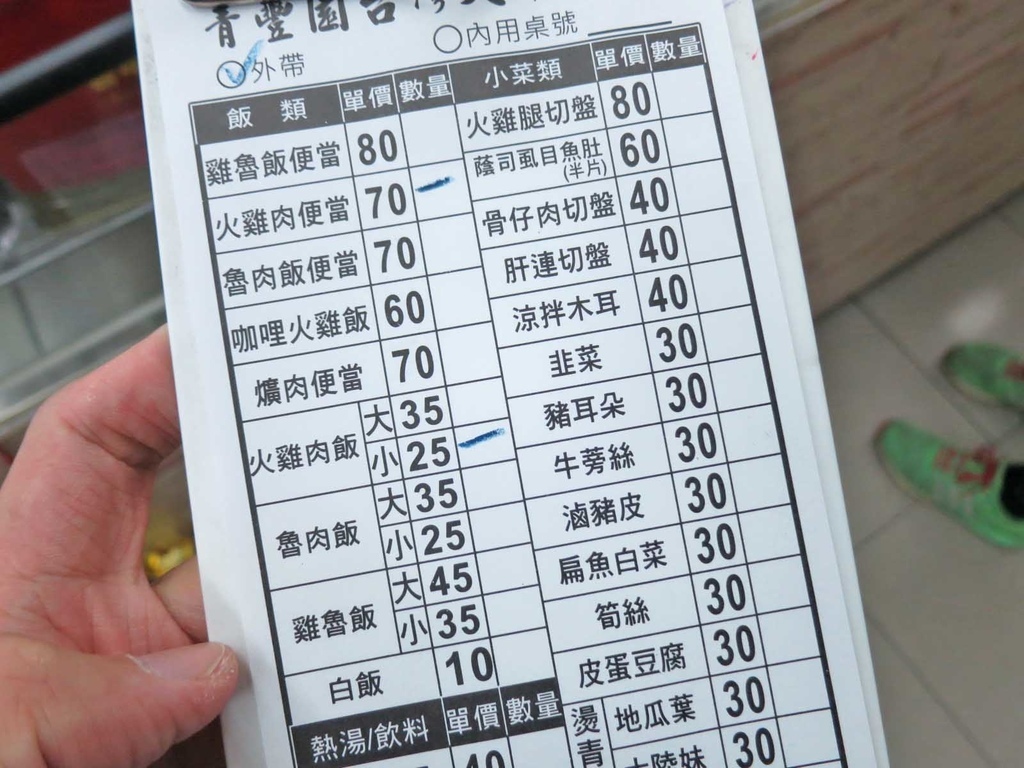 青豐園台灣
外帶
內用桌號
飯類 單價 數量
雞魯飯便當 80
火雞肉便當 70
魯肉飯便當 70
咖哩火雞飯 60
爌肉便當 70
火雞肉飯 大 35
小 25
魯肉飯 大 35
小 25
雞魯飯 大 45
小 35
白飯 10
熱湯/飲料 單價 數量
小菜類 單價 數量
火雞腿切盤 80
蔭司虱目魚肚 60
(半片)
骨仔肉切盤 40
肝連切盤 40
涼拌木耳 40
韭菜 30
豬耳朵 30
牛蒡絲 30
滷豬皮 30
扁魚白菜 30
筍絲 30
皮蛋豆腐 30
燙青 地瓜葉 30
大陸妹 30